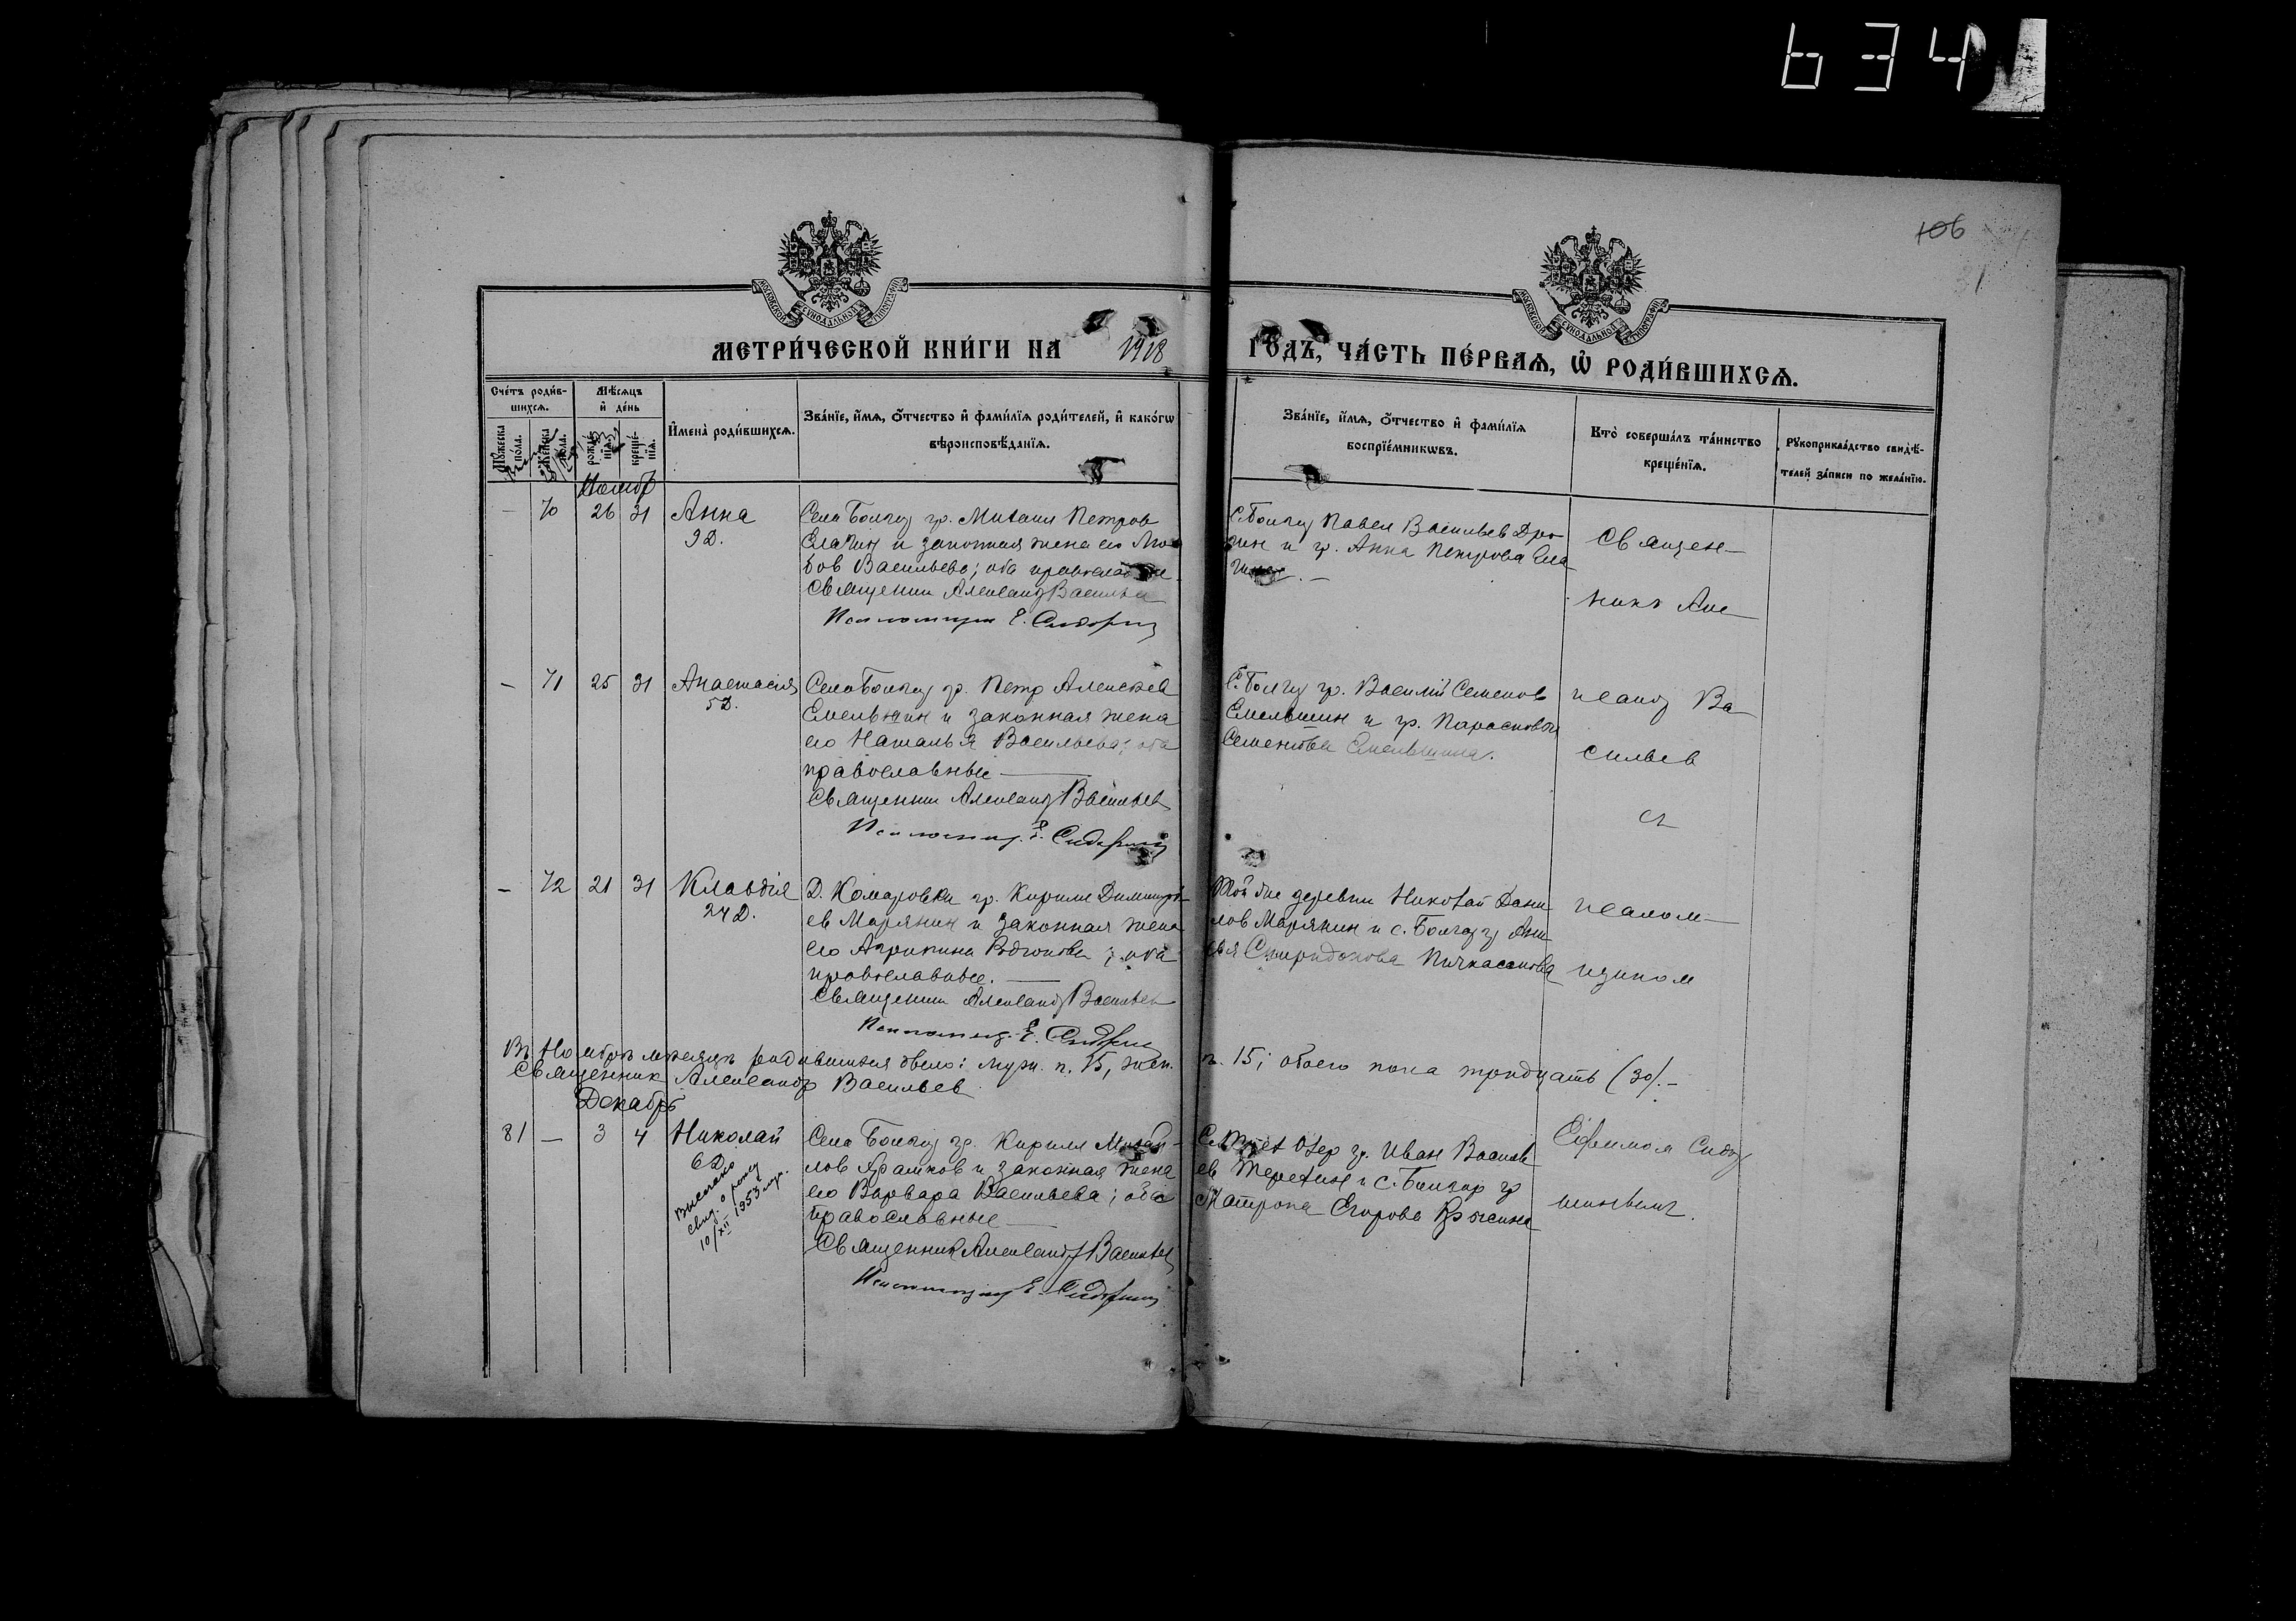 634
106
31
МОСКОВСКОЙ СѴНОДАЛЬНОЙ ТИПОГРАФІИ
МОСКОВСКОЙ СѴНОДАЛЬНОЙ ТИПОГРАФІИ
МЕТРИ́ЧЕСКОЙ КНИ́ГИ НА 1918 ГО́ДЪ, ЧА́СТЬ ПЕ́РВАѦ, Ѽ РОДИ́ВШИХСѦ.
Сче́тъ роди́в-
шихсѧ.
Мѣ́сѧцъ
и҆ де́нь
Мꙋ́жеска
пола.
Же́нска
пола.
рожде́-
нїѧ.
креще́-
нїѧ.
И҆мена̀ роди́вшихсѧ.
Зва́нїе, и҆́мѧ, ѻ҆́тчество и҆ фами́лїѧ роди́телей, и҆ како́гѡ
вѣроисповѣ́данїѧ.
Зва́нїе, и҆́мѧ, ѻ҆́тчество и҆ фами́лїѧ
воспрїе́мникѡвъ.
Кто̀ соверша́лъ та́инство
креще́нїѧ.
Рꙋкоприкла́дство свидѣ́-
телей за́писи по жела́нїю.
Ноябр
— 70 26 31 Анна
9 Д.
Села Болгар гр. Михаил Петров
Елагин и законная жена его Лю
бов Васильева; оба православные
Священник Александр Васильев
Псаломщик Е. Сидорин
С. Болгар Павел Васильев Дро
гин и гр. Анна Петрова Ела
гина. —
Священ—
никъ Але
— 71 25 31 Анастасия
5 Д.
Села Болгар гр. Петр Алексеев
Емельшин и законная жена
его Наталья Васильева; оба
православные —
Священник Александр Васильев
Псаломщ. Е. Сидорин
С. Болгар гр. Василий Семенов
Емельшин и гр. Параскова
Семенова Емельшина.
ксандр Ва
сильев
съ
— 72 21 31 Клавдія
24 Д.
Д. Комаровки гр. Кирилл Димитри
ев Марянин и законная жена
его Агрипина Родионова; оба
православные. —
Священник Александр Васильев
Псаломщ. Е. Сидорин
Той же деревни Николай Дани
лов Марянин и с. Болгар
Спиридонова
псалом—
щиком
Въ Ноябрѣ мѣсяцѣ родившихся было: муж. п. 15, жен. п. 15; обоего пола тридцать (30). —
Священник Александр Васильев
Декабрь
81 — 3 4 Николай
6 Д.
Выслано
свид. о рожд
10/XII 1953 г.
Села Болгар гр. Кирилл Михай-
лов Ярашков и законная жена
его Варвара Васильева; оба
православные —
Священник Александр Васильев
Псаломщик Е. Сидорин
гр. Иван Василь
ев Терехин и с. Болгар гр
Матрона Егорова
Ефимом Сидо